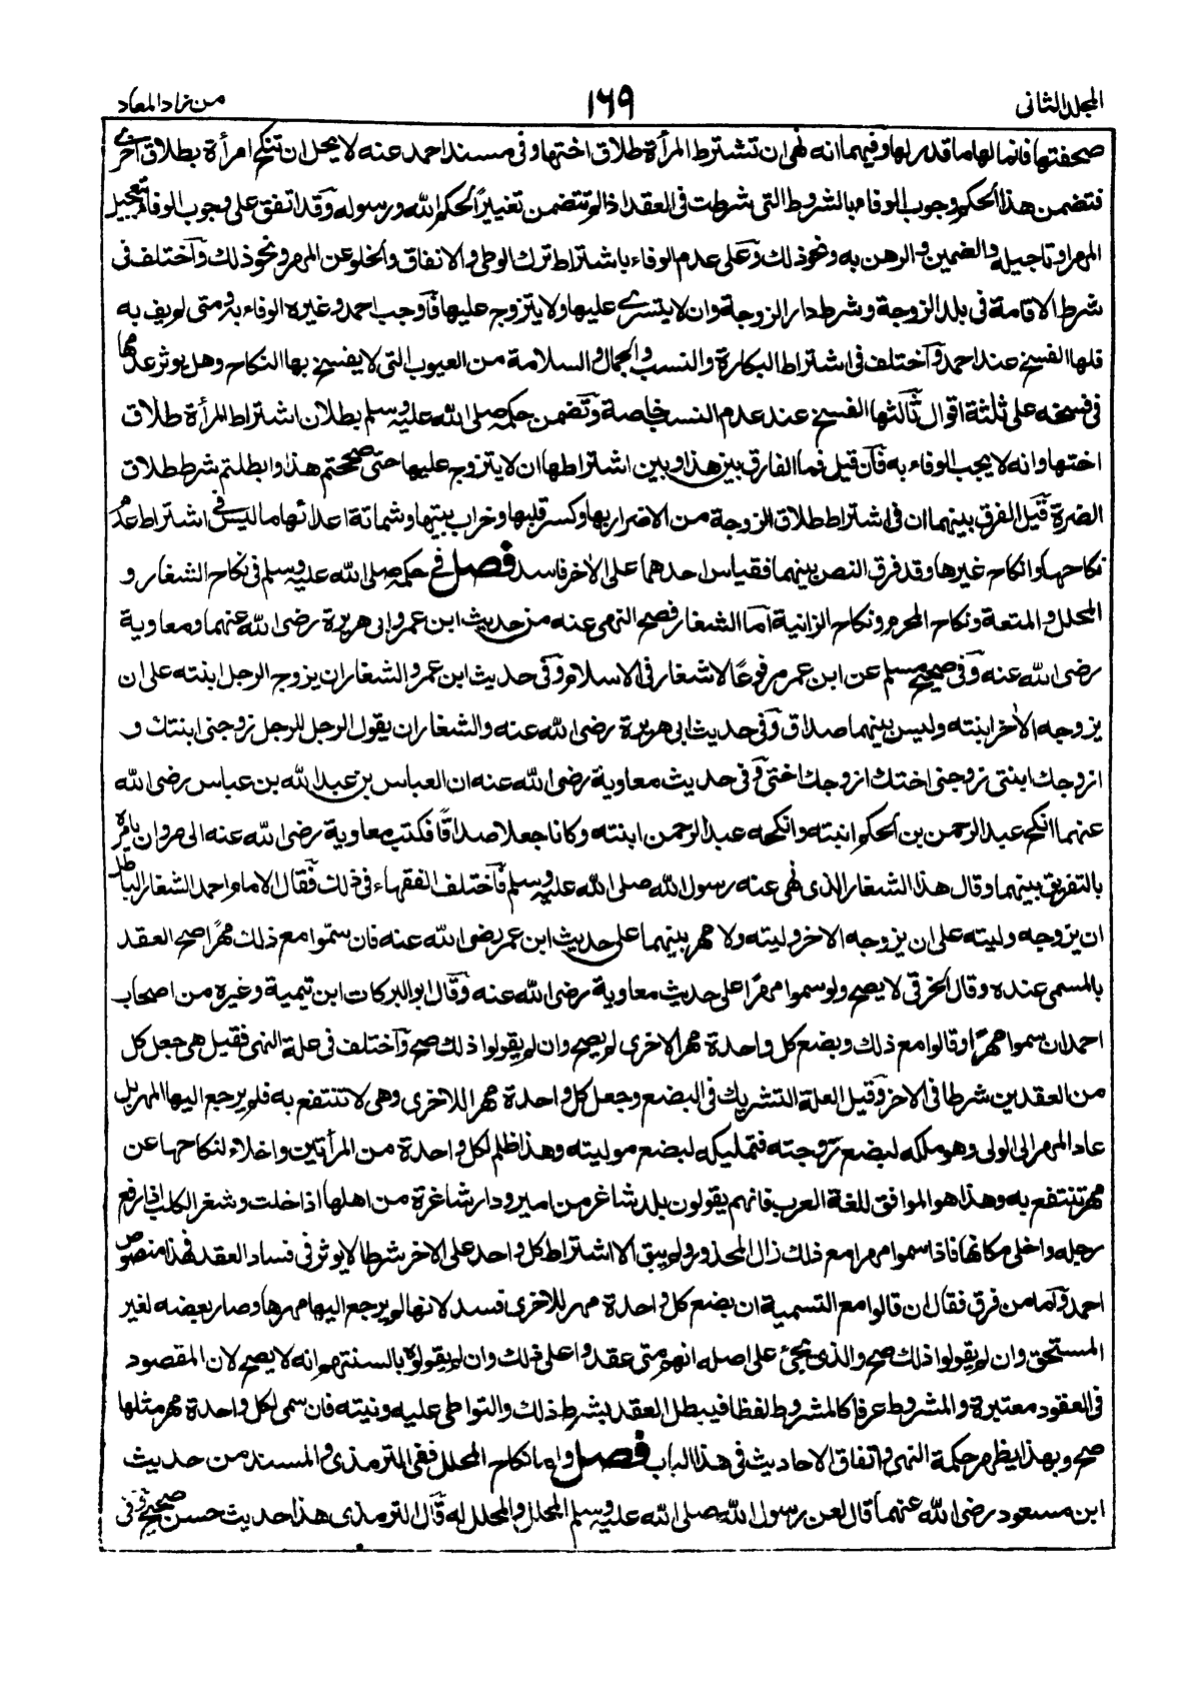 المجلد الثانى
١٦٩
من زاد المعاد
صحفتها فانما لها ما قدر لها وفيهما انه نهى ان تشترط المرأة طلاق اختها وفى مسند احمد عنه لا يحل ان تنكح امرأة بطلاق اخرى
فتضمن هذا الحكم وجوب الوفاء بالشروط التى شرطت فى العقد اذا لم تتضمن تغييرًا لحكم الله ورسوله وقد اتفق على وجوب الوفاء بتعجيل
المهر او تاجيله والضمين والرهن به ونحو ذلك وعلى عدم الوفاء باشتراط ترك الوطى والانفاق والخلو عن المهر ونحو ذلك واختلف فى
شرط الاقامة فى بلد الزوجة وشرط دار الزوجة وان لا يتسرى عليها ولا يتزوج عليها فاوجب احمد وغيره الوفاء به ومتى لم يف به
فلها الفسخ عند احمد واختلف فى اشتراط البكارة والنسب والجمال والسلامة من العيوب التى لا يفسخ بها النكاح وهل يوثر عدمها
فى فسخه على ثلثة اقوال ثالثها الفسخ عند عدم النسب خاصة وتضمن حكمه صلى الله عليه وسلم بطلان اشتراط المرأة طلاق
اختها وانه لا يجب الوفاء به فان قيل فما الفارق بين هذا وبين اشتراطها ان لا يتزوج عليها حتى صححتم هذا وابطلتم شرط طلاق
الضرة قيل الفرق بينهما ان فى اشتراط طلاق الزوجة من الاضرار بها وكسر قلبها وخراب بيتها وشماتة اعدائها ما ليس فى اشتراط عدم
نكاحها وانكاح غيرها وقد فرق النص بينهما فقياس احدهما على الاخر فاسد فصل فى حكمه صلى الله عليه وسلم فى نكاح الشغار و
المحلل والمتعة ونكاح المحرم ونكاح الزانية اما الشغار فصح النهى عنه من حديث ابن عمر وابى هريرة رضى الله عنهما ومعاوية
رضى الله عنه وفى صحيح مسلم عن ابن عمر مرفوعًا لا شغار فى الاسلام وفى حديث ابن عمر والشغار ان يزوج الرجل ابنته على ان
يزوجه الاخر ابنته وليس بينهما صداق وفى حديث ابى هريرة رضى الله عنه والشغار ان يقول الرجل للرجل زوجنى ابنتك و
ازوجك ابنتى زوجنى اختك ازوجك اختى وفى حديث معاوية رضى الله عنه ان العباس بن عبد الله بن عباس رضى الله
عنهما انكح عبد الرحمن بن الحكم ابنته وانكحه عبد الرحمن ابنته وكانا جعلا صداقًا فكتب معاوية رضى الله عنه الى مروان يامره
بالتفريق بينهما وقال هذا الشغار الذى نهى عنه رسول الله صلى الله عليه وسلم فاختلف الفقهاء فى ذلك فقال الامام احمد الشغار الباطل
ان يزوجه وليته على ان يزوجه الاخر وليته ولا مهر بينهما على حديث ابن عمر رضى الله عنه فان سموا مع ذلك مهرًا صح العقد
بالمسمى عنده وقال الخرقى لا يصح ولو سموا مهرًا على حديث معاوية رضى الله عنه وقال ابو البركات ابن تيمية وغيره من اصحاب
احمد ان سموا مهرًا وقالوا مع ذلك وبضع كل واحدة مهر الاخرى لم يصح وان لم يقولوا ذلك صح واختلف فى علة النهى فقيل هى جعل كل
من العقدين شرطا فى الاخر وقيل العلة التشريك فى البضع وجعل كل واحدة مهرا للاخرى وهى لا تنتفع به فلم يرجع اليها المهر بل
عاد المهر الى الولى وهو ملكه لبضع زوجته فتمليكه لبضع موليته وهذا ظلم لكل واحدة من المرأتين واخلاء لنكاحها عن
مهر تنتفع به وهذا هو الموافق للغة العرب فانهم يقولون بلد شاغر من امير ودار شاغرة من اهلها اذا خلت وشغر الكلب اذا رفع
رجله واخلى مكانها فاذا سموا مهرا مع ذلك زال المحذور ولم يبق الا اشتراط كل واحد على الاخر شرطا لا يوثر فى فساد العقد فهذا منصوص
احمد واما من فرق فقال ان قالوا مع التسمية ان بضع كل واحدة مهر للاخرى فسد لانها لم يرجع اليها مهرها وصار بعضه لغير
المستحق وان لم يقولوا ذلك صح والذى يجئ على اصله انهم متى عقدوا على ذلك وان لم يقولوه بالسنتهم انه لا يصح لان المقصود
فى العقود معتبرة والمشروط عرفا كالمشروط لفظا فيبطل العقد بشرط ذلك والتواطى عليه ونيته فان سمى لكل واحدة مهر مثلها
صح وبهذا يظهر حكمة النهى واتفاق الاحاديث فى هذا الباب فصل واما نكاح المحلل ففى الترمذى والمسند من حديث
ابن مسعود رضى الله عنهما قال لعن رسول الله صلى الله عليه وسلم المحلل والمحلل له قال الترمذى هذا حديث حسن صحيح وفى